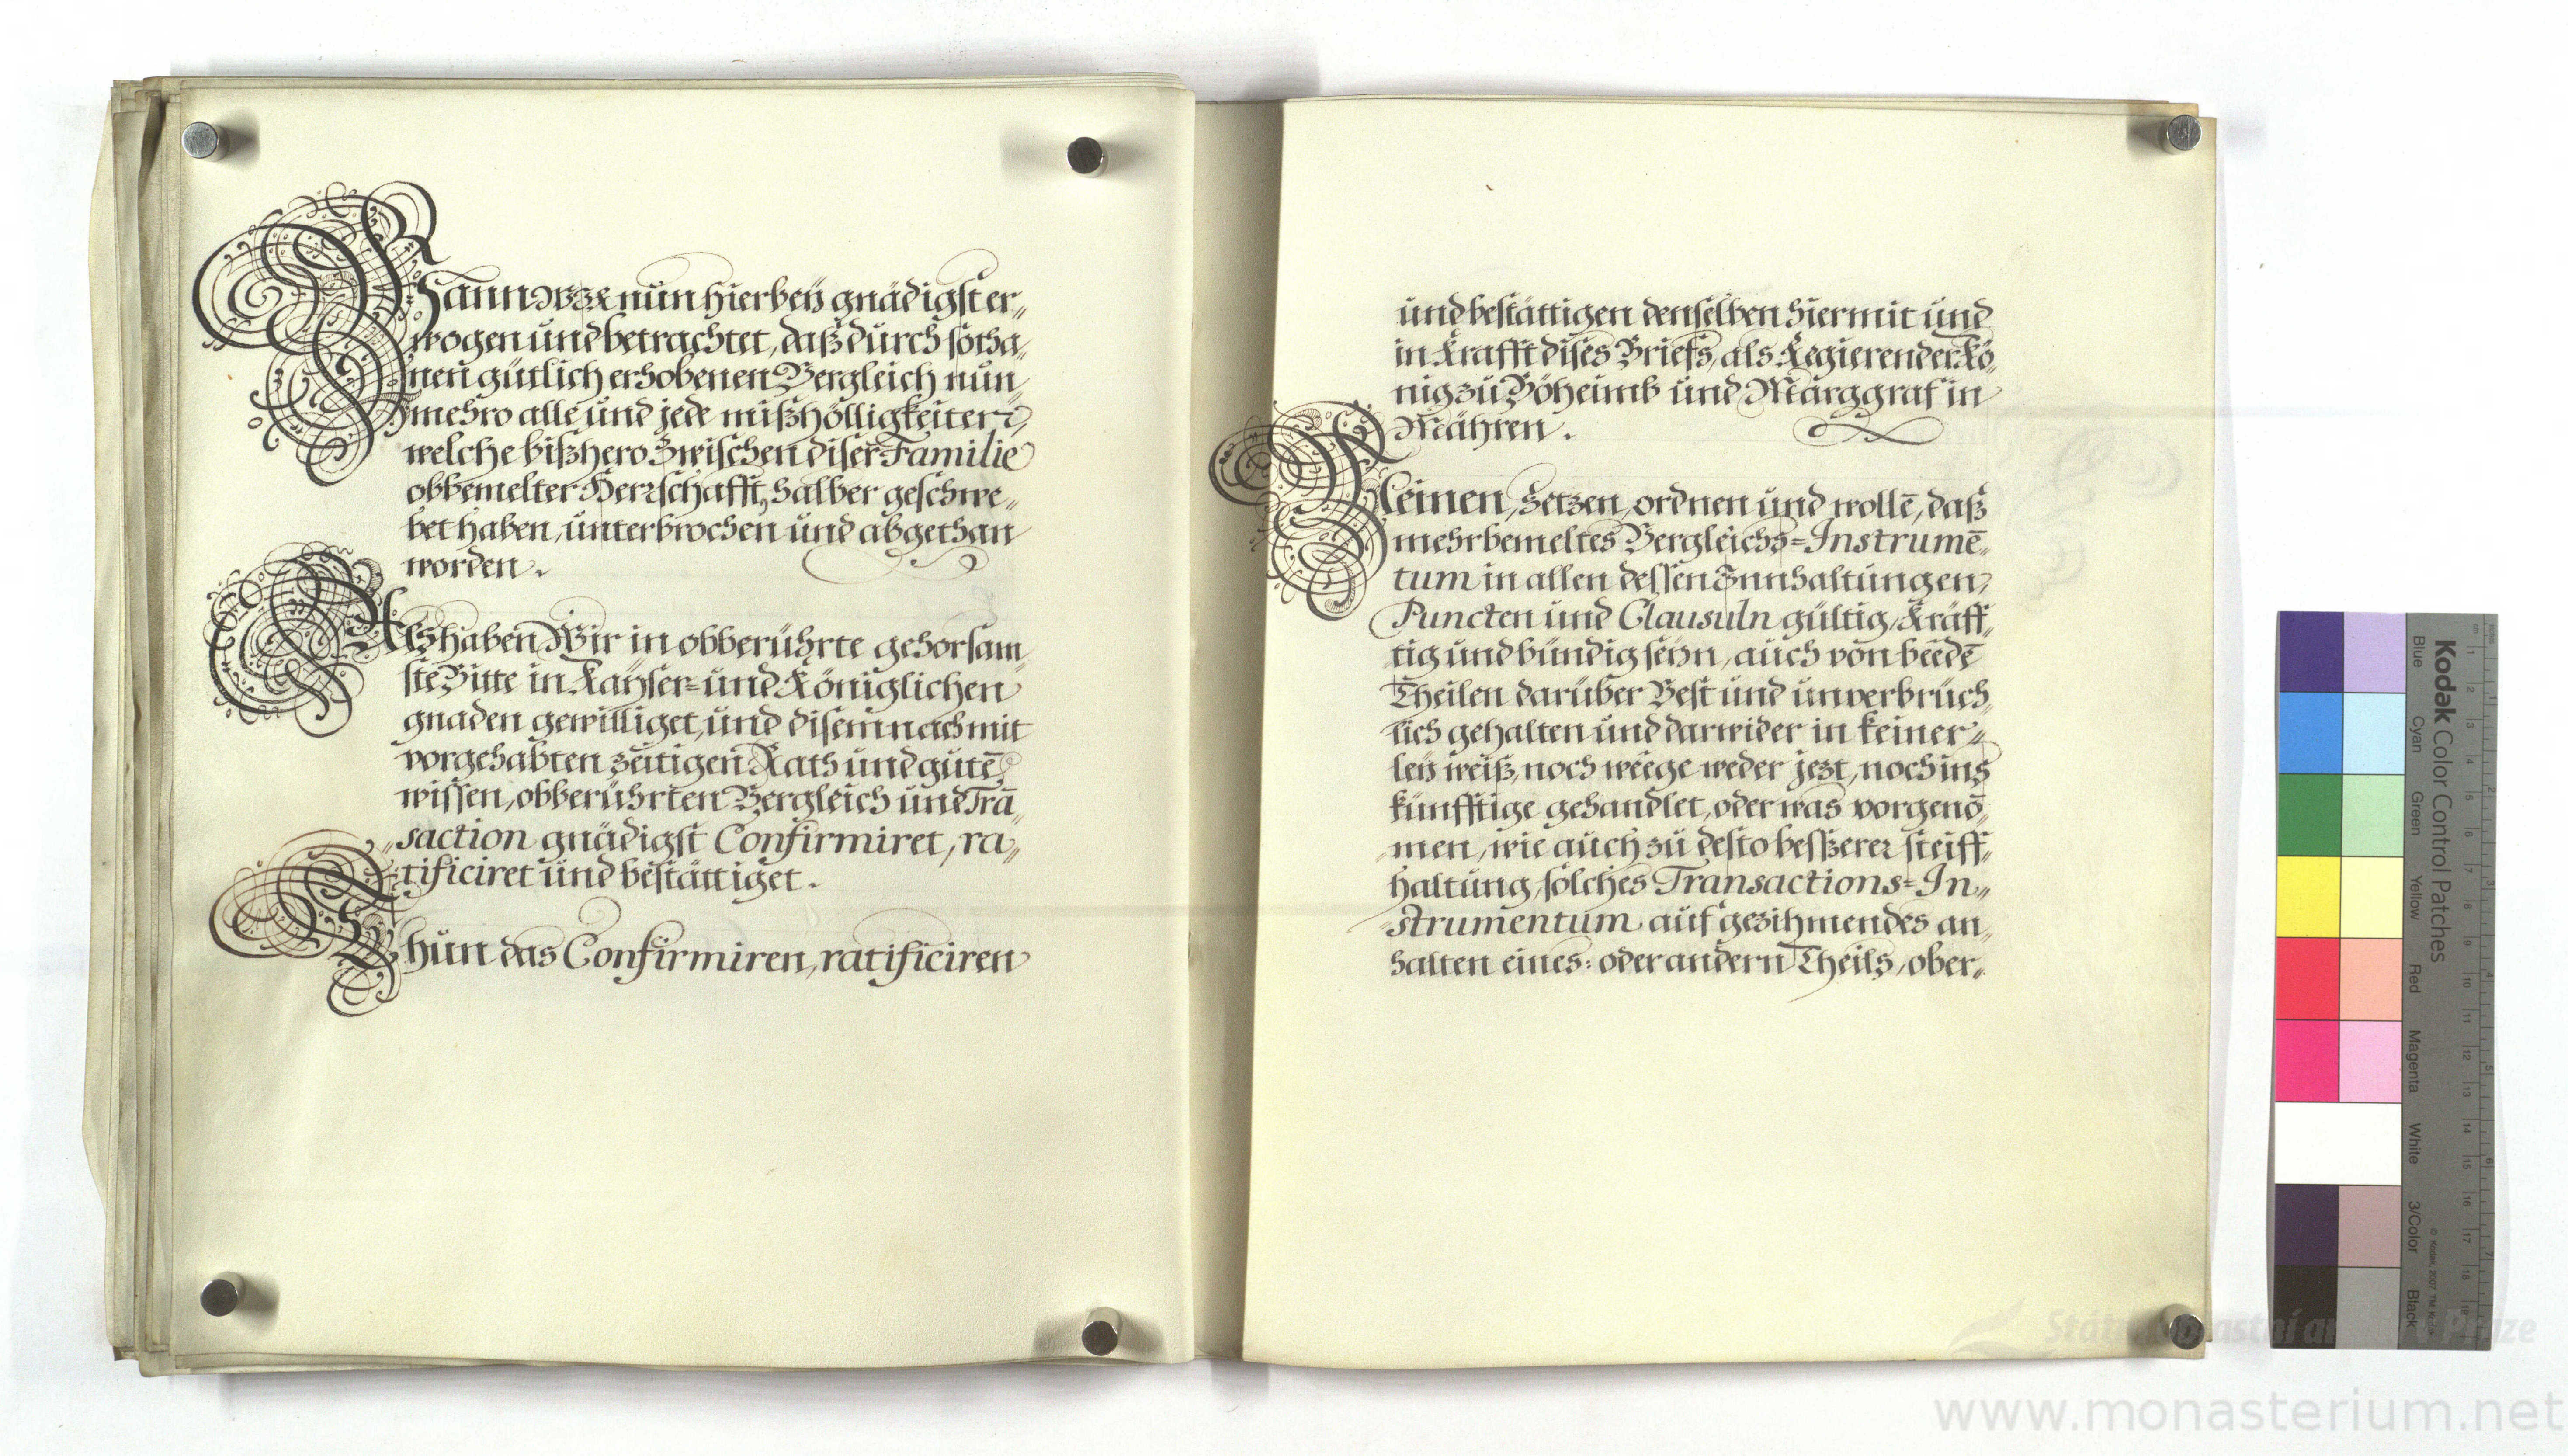 Wann Wir nun hierbeÿ gnädigst er„
wogen und betrachtet, daß durch sotha„
nen gütlich erhobenen Vergleich nun„
mehro alle und jede mißhölligkeiten,
welche bißhero zwischen diser Familie
obbemelter Herrschafft, halber geschwe„
bet haben, unterbrochen und abgethan
worden.
Alß haben Wir in obberührte gehorsam„
ste Bitte in Kaÿser= und Königlichen
gnaden gewilliget, und disemnach mit
vorgehabten zeitigen Rath und gutē
wissen, obberührten Vergleich und Trā„
„saction gnädigst Confirmiret, ra„
tificiret und bestättiget.
Thun das Confirmiren, ratificiren
und bestättigen denselben hiermit und
in Krafft dises Briefs, als Regierender Kö„
nig zu Böheimb und Marggraf in
Mähren.
Meinen, setzen, ordnen und wollē, daß
mehrbemeltes Vergleichs=Instrumē„
tum in allen dessen Innhaltungen,
Puncten und Clausuln gültig, Kräff„
tig und bündig seÿn, auch von beedē
Theilen darüber Vest und unverbrüch„
lich gehalten und darwider in keiner„
leÿ weiß, noch weege weder jezt, noch ins
künfftige gehandlet, oder was vorgenō„
„men, wie auch zu desto besßerer steiff„
haltung, solches Transactions=In„
„strumentum auf gezihmendes an„
halten eines: oder andern Theils, ober„
Kodak Color Control Patches
Blue Cyan Green Yellow Red Magenta White 3/Color Black
© Kodak, 2007 TM
Státní oblastní archiv v Praze
www.monasterium.net